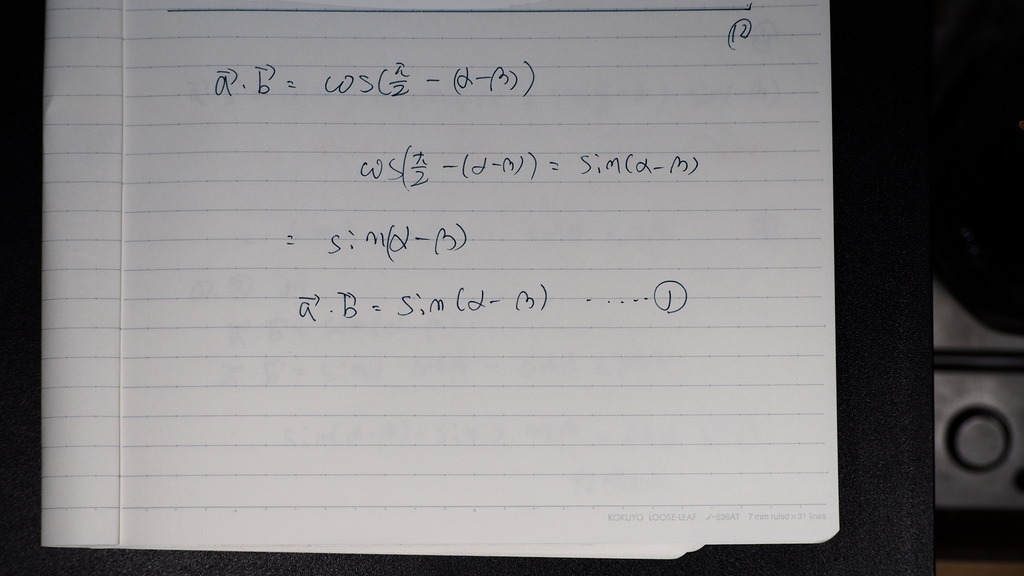 ⑫
a⃗・b⃗ = cos(π/2 - (α-β))
cos(π/2 - (α-β)) = sin(α-β)
= sin(α-β)
a⃗・b⃗ = sin(α-β) ······①
KOKUYO LOOSE-LEAF ノ-836AT 7 mm ruled×31 lines